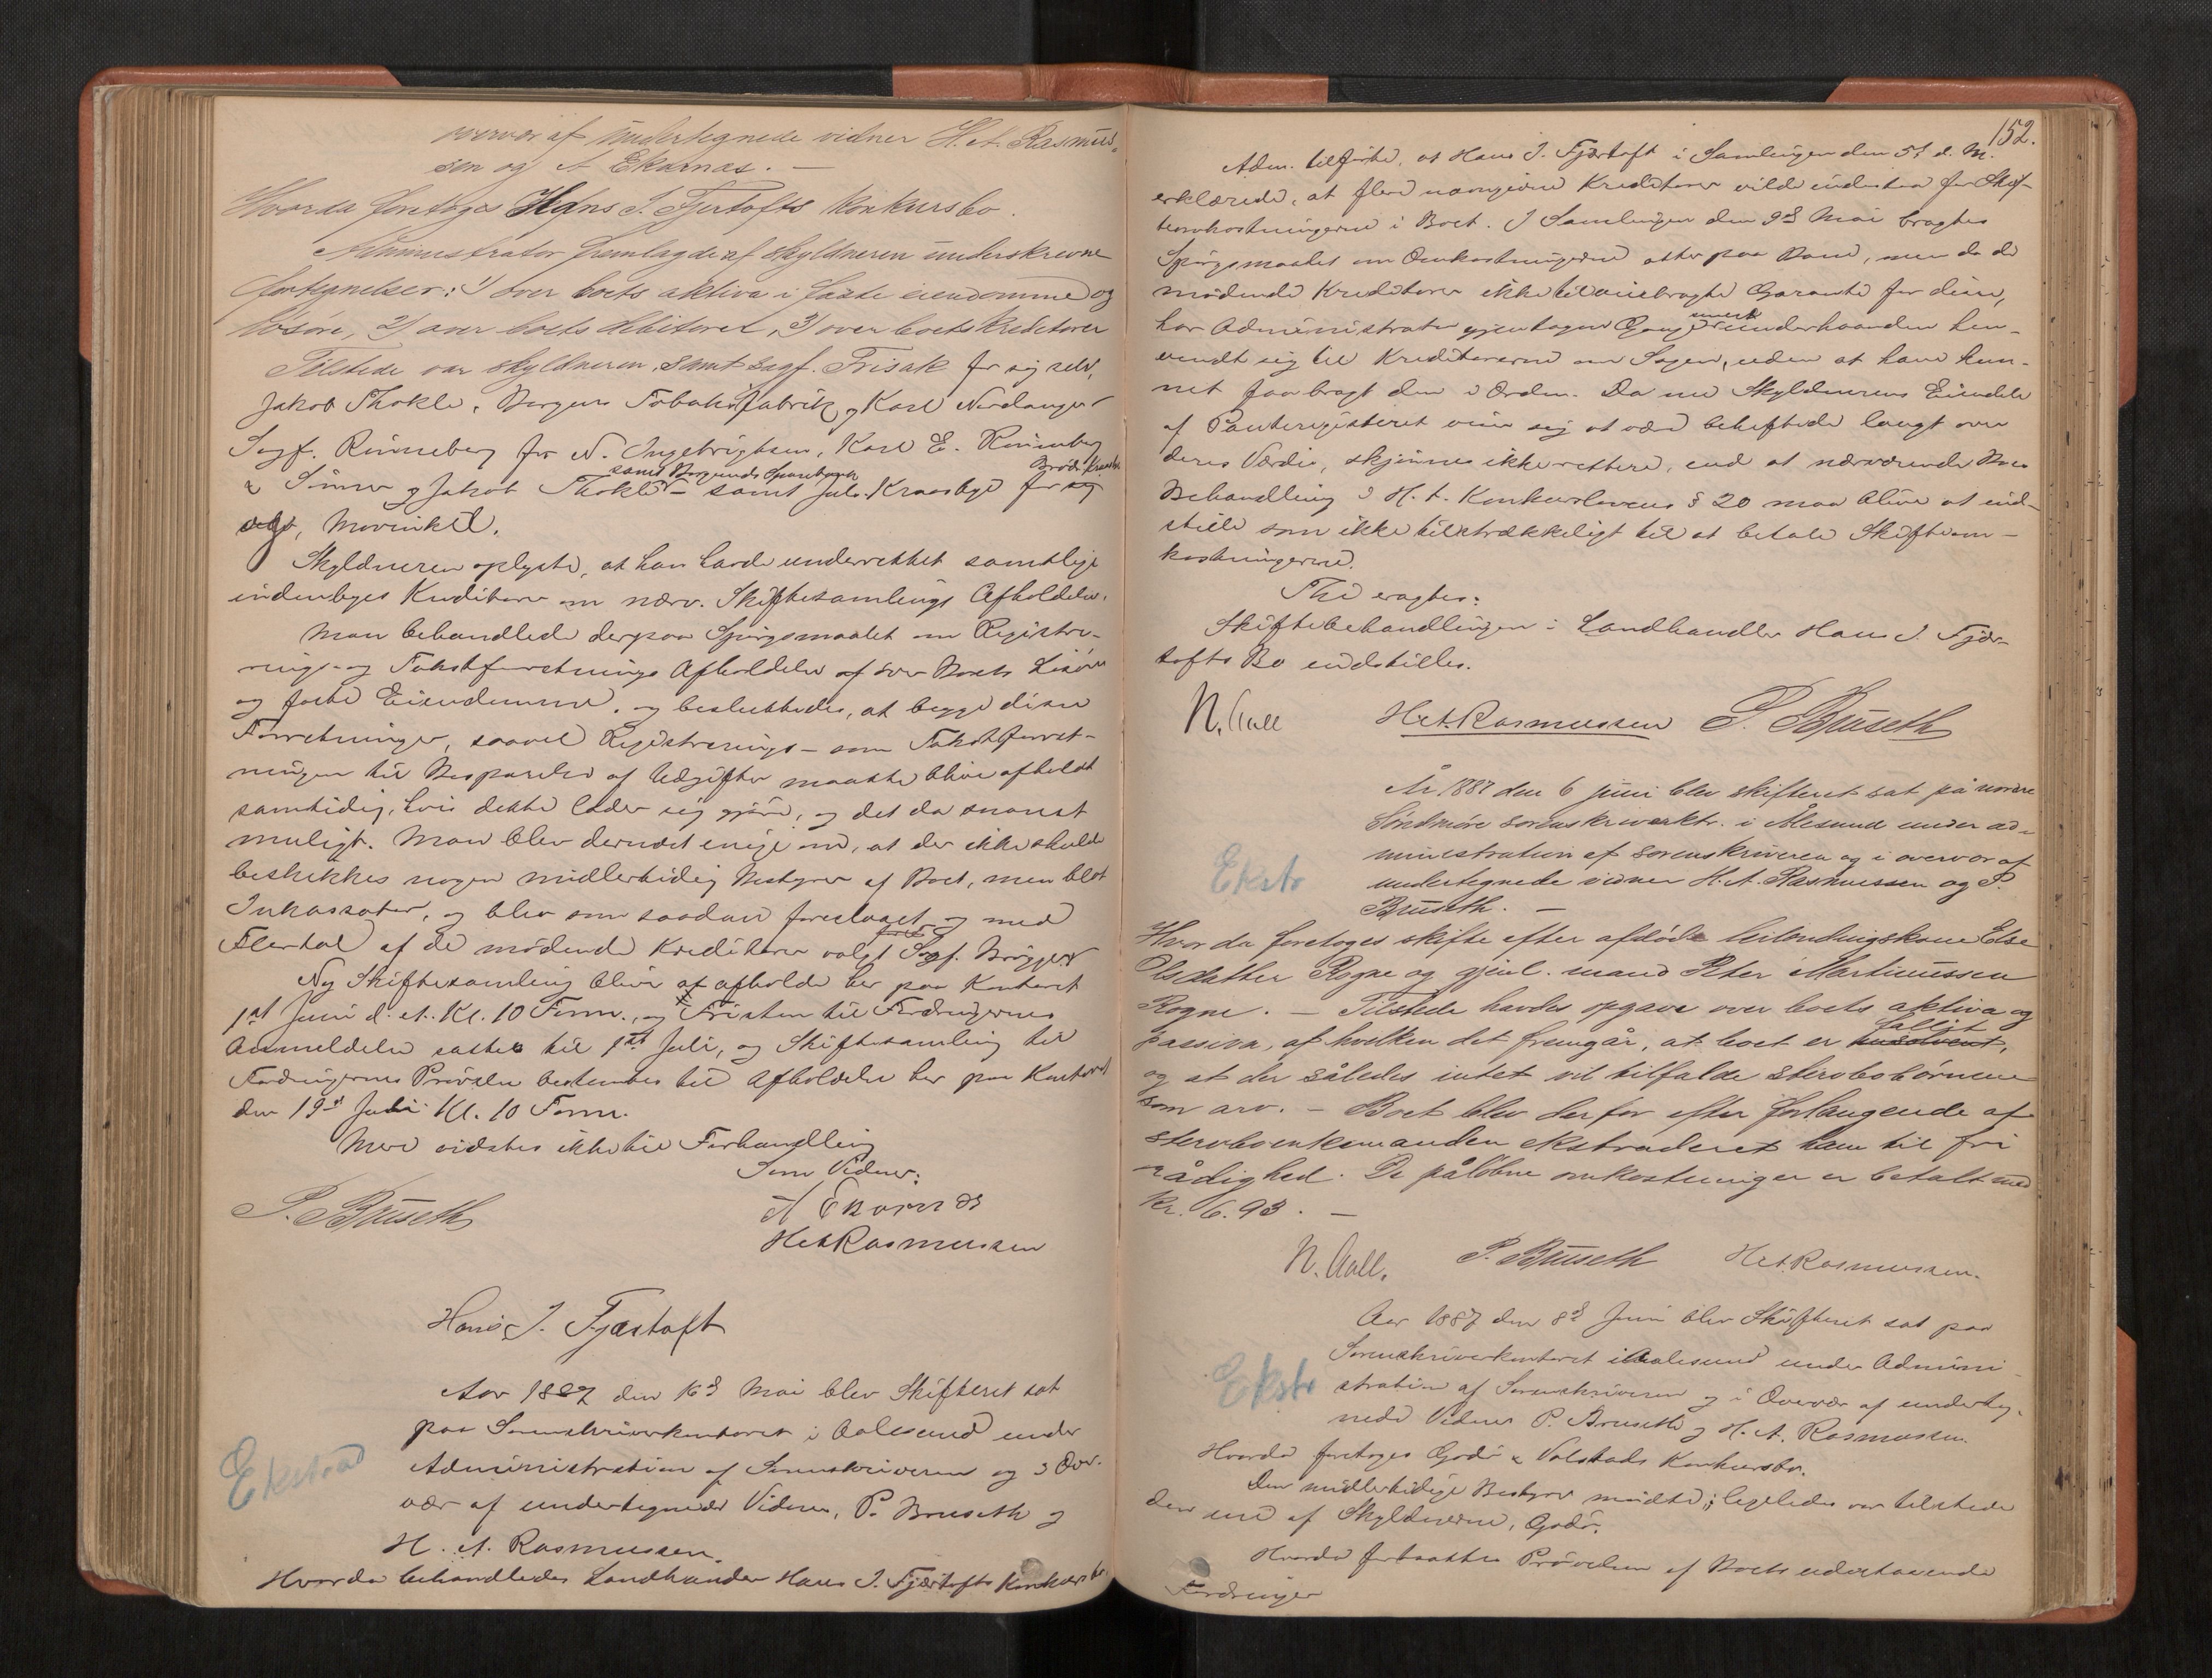 overvær af undertegnede vidner H. A. Rasmus-
sen og A Ekornæs. —
Hvorda foretoges Hans J. Fjertofts konkursbo.
Administrator fremlagde af skyldneren underskrevne
fortegnelser: 1) over boets aktiva i faste eiendomme og
løsøre, 2) over boets debitorer, 3) over boets kreditorer
Tilstede var skyldneren, samt sagf. Frisak for sig selv,
Jakob Thokle, Bergens Tobaksfabrik og Karl Nordanger
Sagf. Rønneberg for N. Ingebrigtsen, Karl E. Rønneberg
samt Borgunds Sparebank Brødr. Kraasbye
& Sønner og Jakob Thokle – samt Juls. Kraasbye for sig
selv, Morinkel.
Skyldneren oplyste, at han havde underrettet samtlige
indenbyes Kreditorer om nærv. Skiftesamlings Afholdelse.
Man behandlede derpaa Spørgsmaalet om Registre-
rings- og Takstforretnings Afholdelse af over Boets Løsøre
og faste Eiendomme, og besluttedes, at begge disse
Forretninger, saavel Registrerings- som Takstforret-
ningen til Besparelse af Udgifter maatte blive afholdt
samtidig, hvis dette lader sig gjøre, og det da snarest
muligt. Man blev dernæst enige om, at der ikke skulde
beskikkes nogen midlertidig Bestyrer af Boet, men blot
Inkassator, og blev som saadan foreslaaet og med
Flertal af de mødende Kreditorer valgt Sagf. Brøgger
Ny Skiftesamling bliver at afholde her paa Kontoret
1st Juni d. A. Kl. 10 Form., og Fristen til Fordringernes
Anmeldelse sattes til 1st Juli, og Skiftesamling til
Fordringernes Prøvelse bestemtes til Afholdelse her paa Kontoret
den 19d Juli Kl. 10 Form.
Mere vidstes ikke til Forhandling
Som Vidner:
P. Bruseth
A Ekornæs
H A Rasmussen
Hans J. Fjærtoft
Aar 1887 den 16d Mai blev Skifteret sat
paa Sorenskriverkontoret i Aalesund under
Ekstrad
Administration af Sorenskriveren og i Over-
vær af undertegnede Vidner, P. Bruseth og
H. A. Rasmussen.
Hvorda behandledes Landhandler Hans J. Fjærtofts Konkursbo.
152.
Adm. tilførte, at Hans J. Fjærtoft i Samlingen den 5t d. M.
erklærede, at flere navngivne Kreditorer vilde indestaa for Skif-
teomkostningerne i Boet. I Samlingen den 9d Mai bragtes
Spørgsmaalet om Omkostningerne atter paa Bane, men da de
mødende Kreditorer ikke tilveiebragte Garanti for disse,
har Administrator gjentagne Gange underhaanden hen-
vendt sig til Kreditorerne om Sagen, uden at have kun-
net faa bragt den i Orden. Da nu Skyldnerens Eiendele
af Panteregisteret viser sig at være beheftede langt over
deres Værdi, skjønnes ikke rettere, end at nærværende Boes
Behandling i H. t. Konkurslovens § 20 maa blive at ind-
stille som ikke tilstrækkeligt til at betale Skifteom-
kostningerne.
Thi eragtes:
Skiftebehandlingen i Landhandler Hans J. Fjær-
tofts Bo indstilles.
N. Aall H. A. Rasmussen P. Bruseth
År 1887 den 6 juni blev skifteret sat på nordre
Søndmøre sorenskriverktr. i Ålesund under ad-
ministration af sorenskriveren og i overvær af
Ekstr
undertegnede vidner H. A. Rasmussen og P.
Bruseth. —
Hvor da foretoges skifte efter afdøde leilændingskone Else
Olsdatter Rogne og gjenl. mand Peter Martinussen
Rogne. — Tilstede havdes opgave over boets aktiva og
fallit
passiva, af hvilken det fremgår, at boet er insolvent,
og at der således intet vil tilfalde stervbobørnene
som arv. – Boet blev derfor efter forlangende af
stervboenkemanden ekstraderet ham til fri
rådighed. De påløbne omkostninger er betalt med
kr. 6.93. —
N. Aall. P. Bruseth H A Rasmussen.
Aar 1887 den 8d Juni blev Skifteret sat paa
Sorenskriverkontoret i Aalesund under Admini-
Ekstr
stration af Sorenskriveren og i Overvær af underteg-
nede Vidner P. Bruseth og H. A. Rasmussen.
Hvorda foretoges Godø & Valstads Konkursbo.
Den midlertidige Bestyrer mødte; ligeledes var tilstede
den ene af Skyldnerne, Godø.
Hvorda fortsattes Prøvelsen af Boets udestaaende
Fordringer